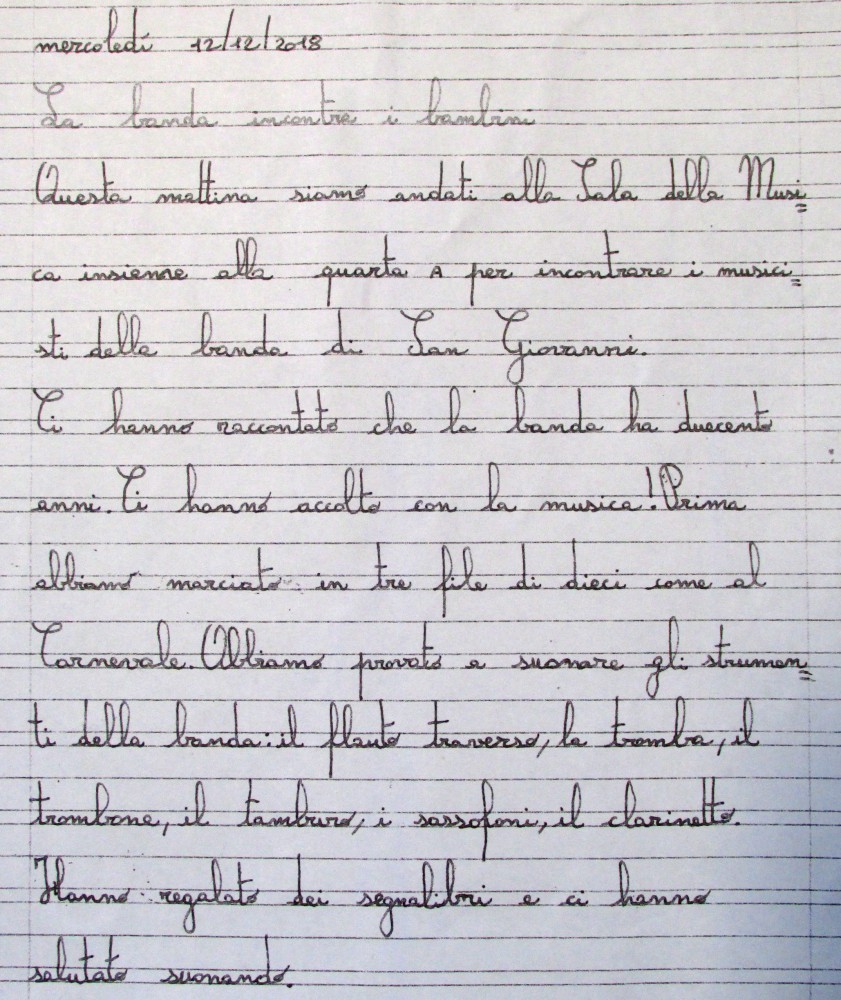 mercoledì 12/12/2018
La banda incontra i bambini
Questa mattina siamo andati alla Sala della Musi=
ca insieme alla quarta A per incontrare i musici=
sti della banda di San Giovanni.
Ci hanno raccontato che la banda ha duecento
anni. Ci hanno accolto con la musica! Prima
abbiamo marciato in tre file di dieci come al
Carnevale. Abbiamo provato a suonare gli strumen=
ti della banda: il flauto traverso, la tromba, il
trombone, il tamburo, i sassofoni, il clarinetto.
Hanno regalato dei segnalibri e ci hanno
salutato suonando.